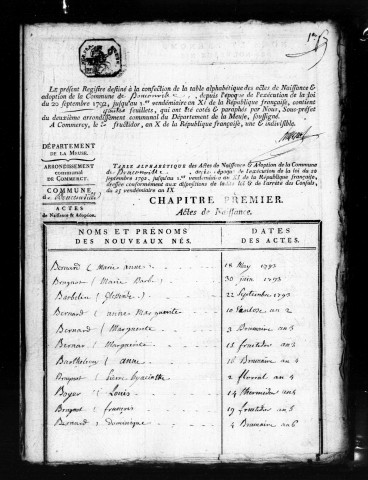 LE présent Registre destiné à la confection de la table alphabétique des actes de Naissance &
adoption de la Commune de Boncourt, depuis l'époque de l'exécution de la loi
du 20 septembre 1792, jusqu'au 1.er vendémiaire an XI de la République française, contient
feuillets, qui ont été cotés & paraphés par Nous, Sous-préfet
du deuxième arrondissement communal du Département de la Meuse, soussigné.
A Commercy, le fructidor, an X de la République française, une & indivisible.
DÉPARTEMENT
DE LA MEUSE.
ARRONDISSEMENT
communal
DE COMMERCY.
COMMUNE
ACTES
de Naissance & Adoption.
TABLE ALPHABÉTIQUE des Actes de Naissance & Adoption de la Commune
de depuis l'époque de l'exécution de la loi du 20 sep-
tembre 1792, jusqu'au 1.er vendémiaire an XI de la République française,
dressée conformément aux dispositions de ladite loi & de l'arrêté des Consuls,
du 25 vendémiaire an IX
CHAPITRE PREMIER.
Actes de Naissance.
NOMS ET PRÉNOMS
DES NOUVEAUX NÉS.
DATES
DES ACTES.
Bernard ( Marie anne 18 May 1793
( Marie Barbe ) 30 juin 1793
22 Septembre 1793
Bernard ( anne Marguerite 10 Ventose an 2
Bernard ( Marguerite 3 Brumaire an 3
Bernard ( Marguerite 13 fructidor an 3
Barthelemy ( anne 16 Brumaire an 4
( Pierre hyacinthe 2 floreal an 4
Boyer ( Louis 14 thermidor an 4
( françois 19 fructidor an 5
Bernard ( Dominique 4 Brumaire an 6